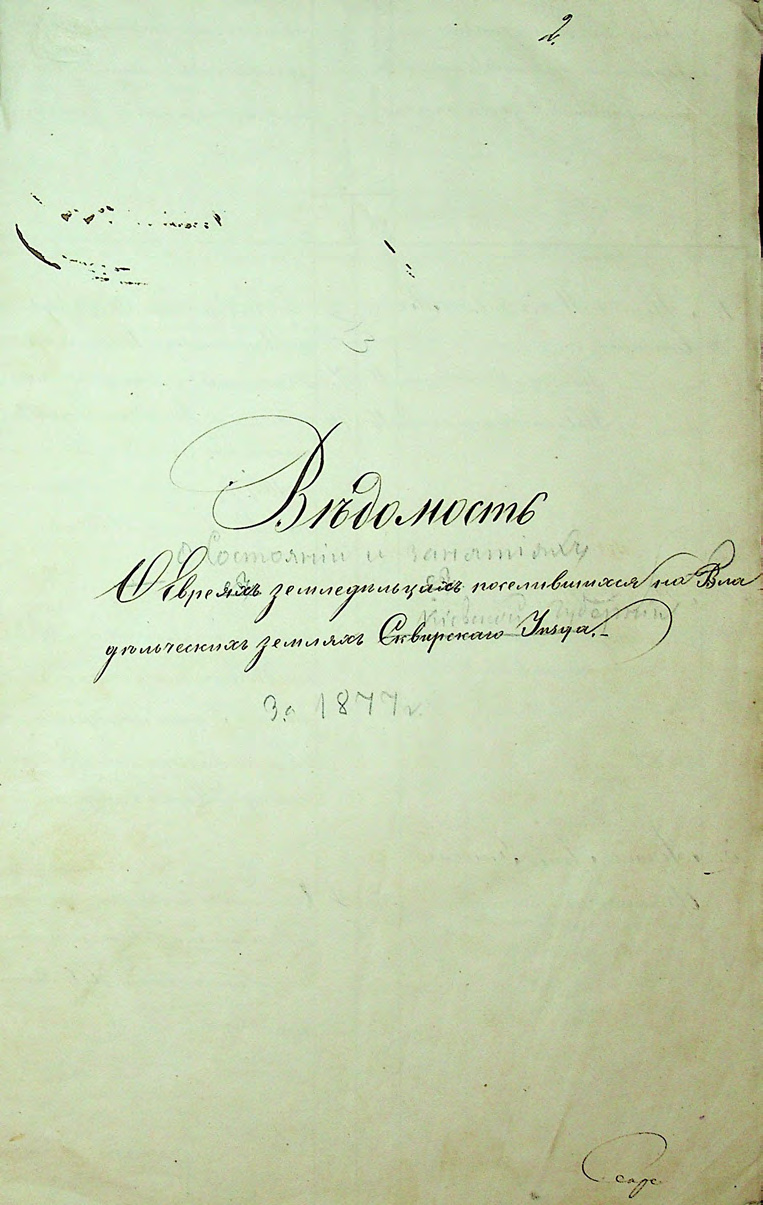 2.
Вѣдомость
о Состояніи и занятіяхъ
О Евреяхъ земледѣльцахъ поселившихся на Вла
дѣльческихъ земляхъ Сквирскаго Уѣзда.
За 1877 г.